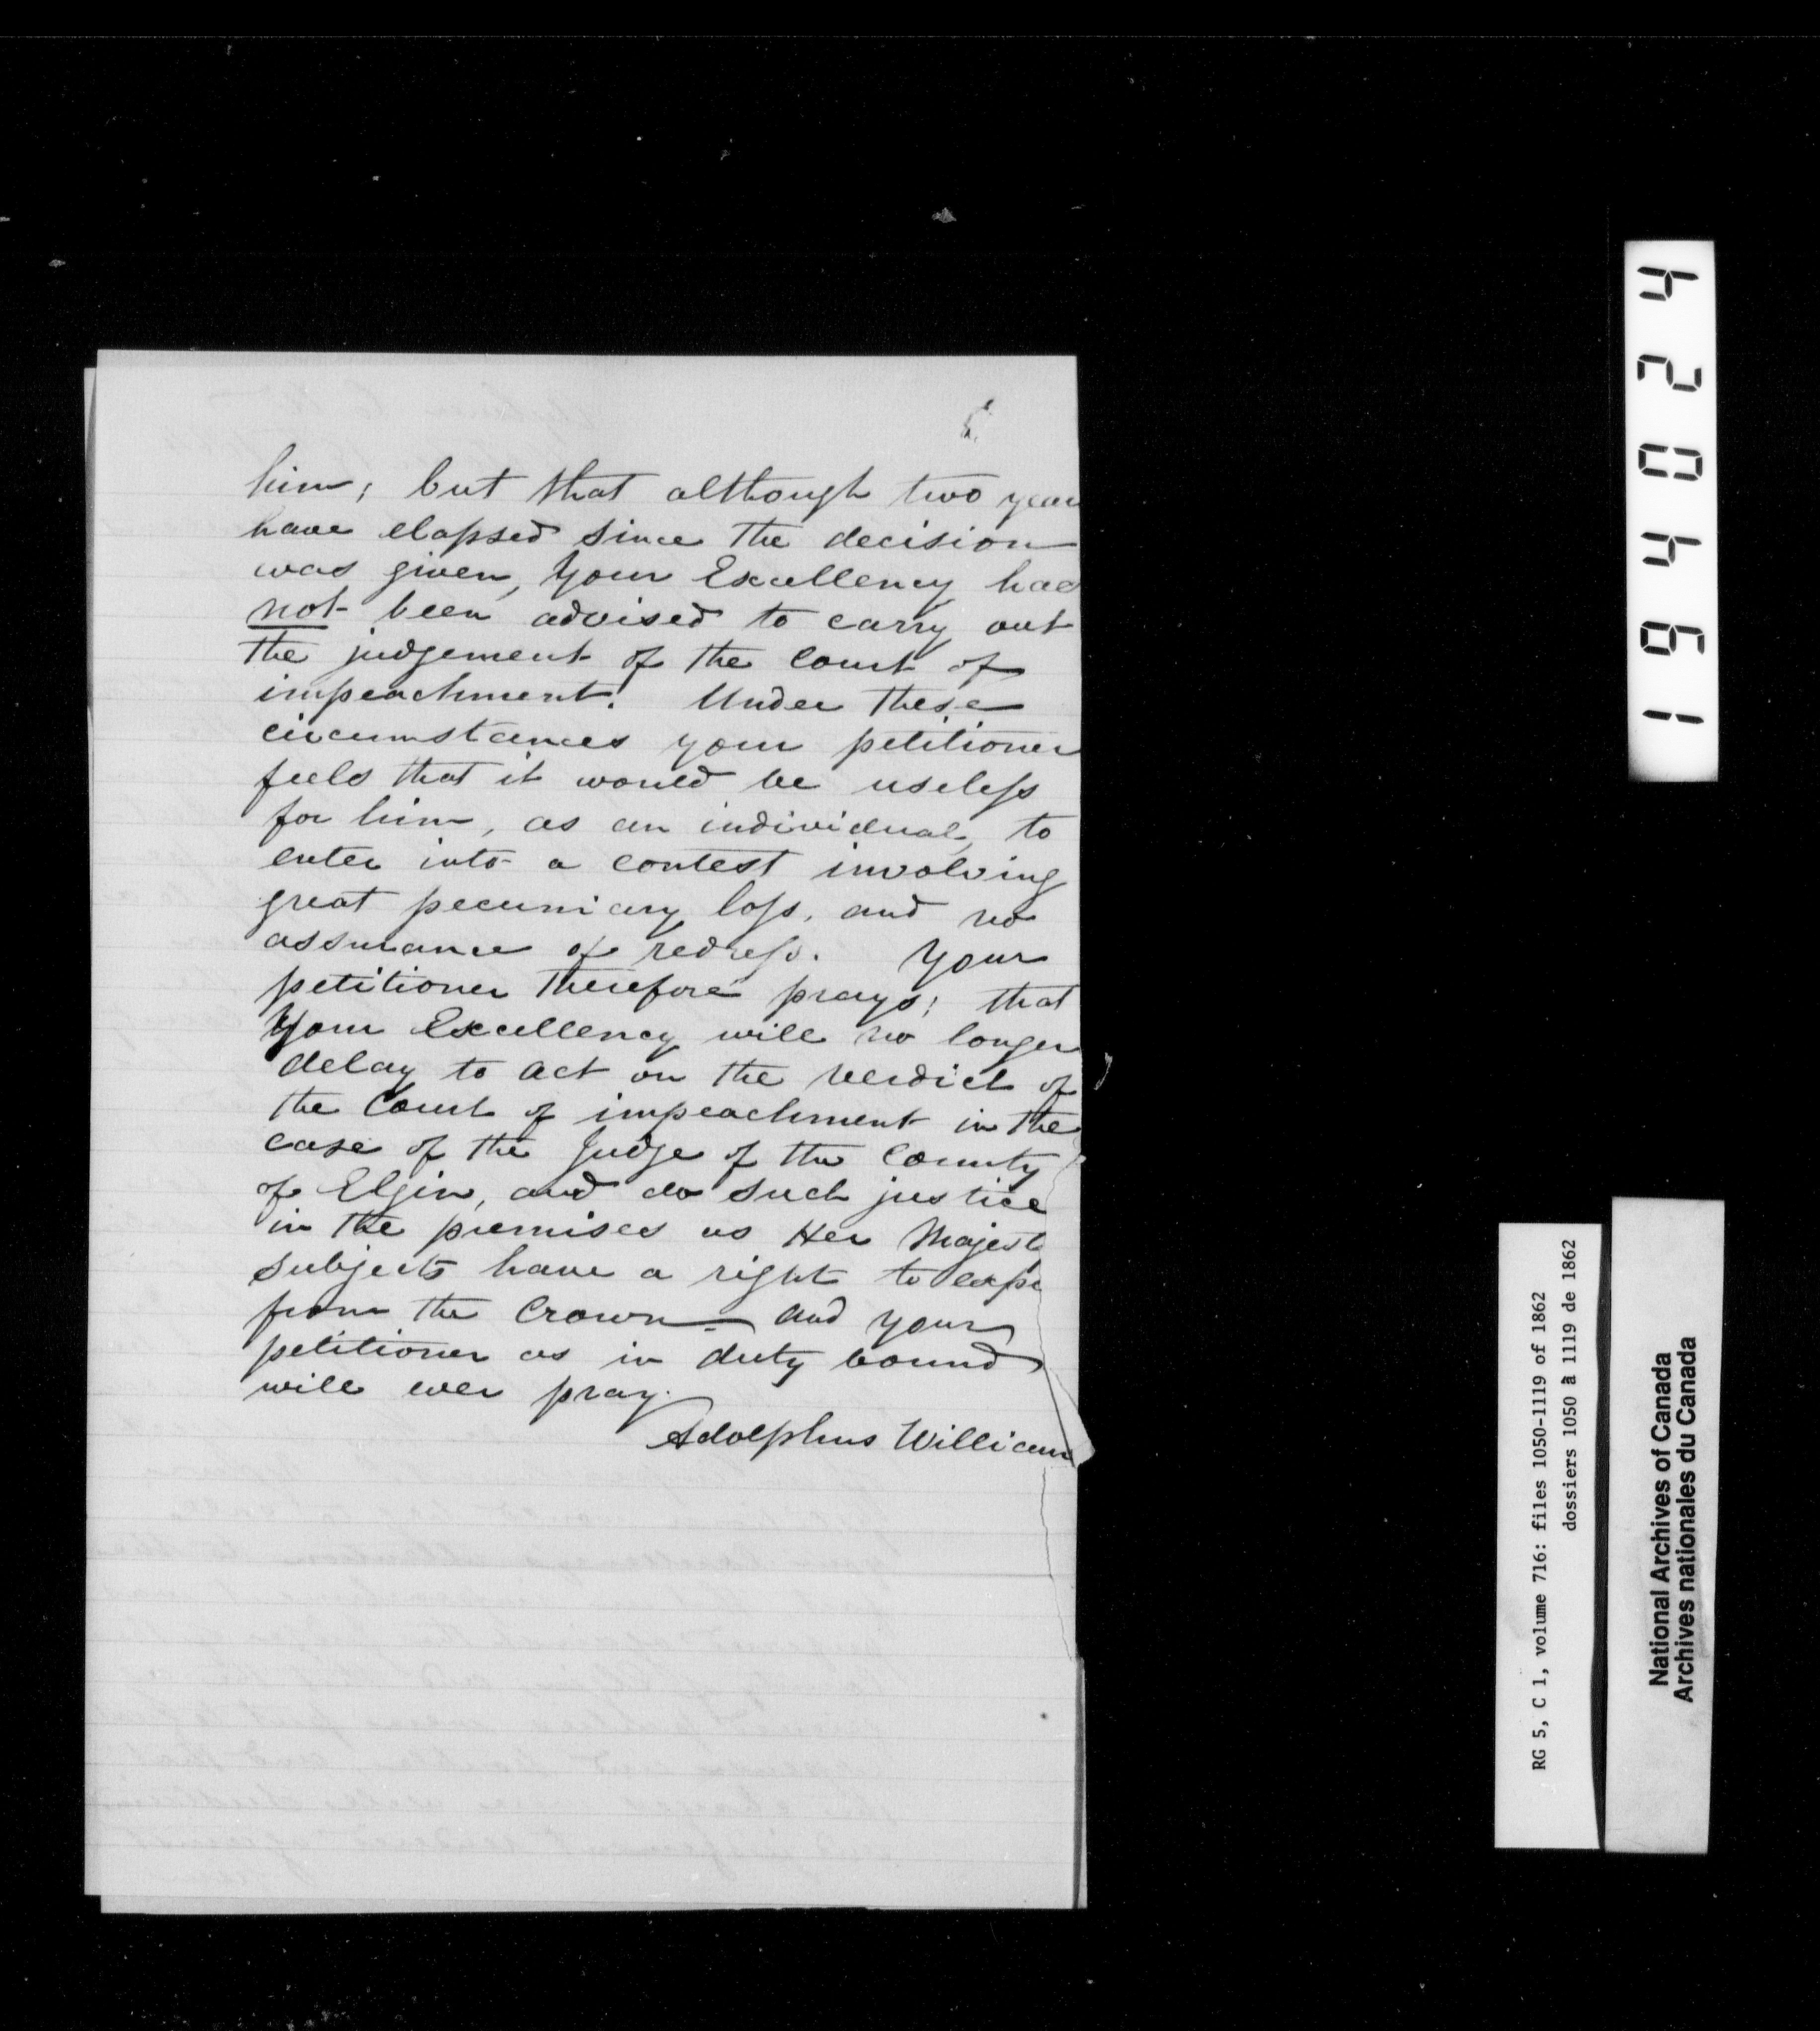 him; but that although two year
have elapsed since the decision
was given, Your Excellency had
not been advised to carry out
the judgement of the Court of
impeachment! Under these
circumstances your petitioner
feels that it would be useless
for him, as an individual, to
enter into a contest involving
great pecuniary loss, and no
assurance of redress. Your
petitioner therefore prays; that
Your Excellency will no longer
delay to act on the verdict of
the Court of impeachment in the
case of the Judge of the County
of Elgin, and do such justice
in the premises as Her Majest
subjects have a right to expe
from the Crown - and your
petitioner as in duty bound
will ever pray.
Adolphus William
194024
RG 5, C 1, volume 716: files 1050-1119 of 1862
dossiers 1050 à 1119 de 1862
National Archives of Canada
Archives nationales du Canada